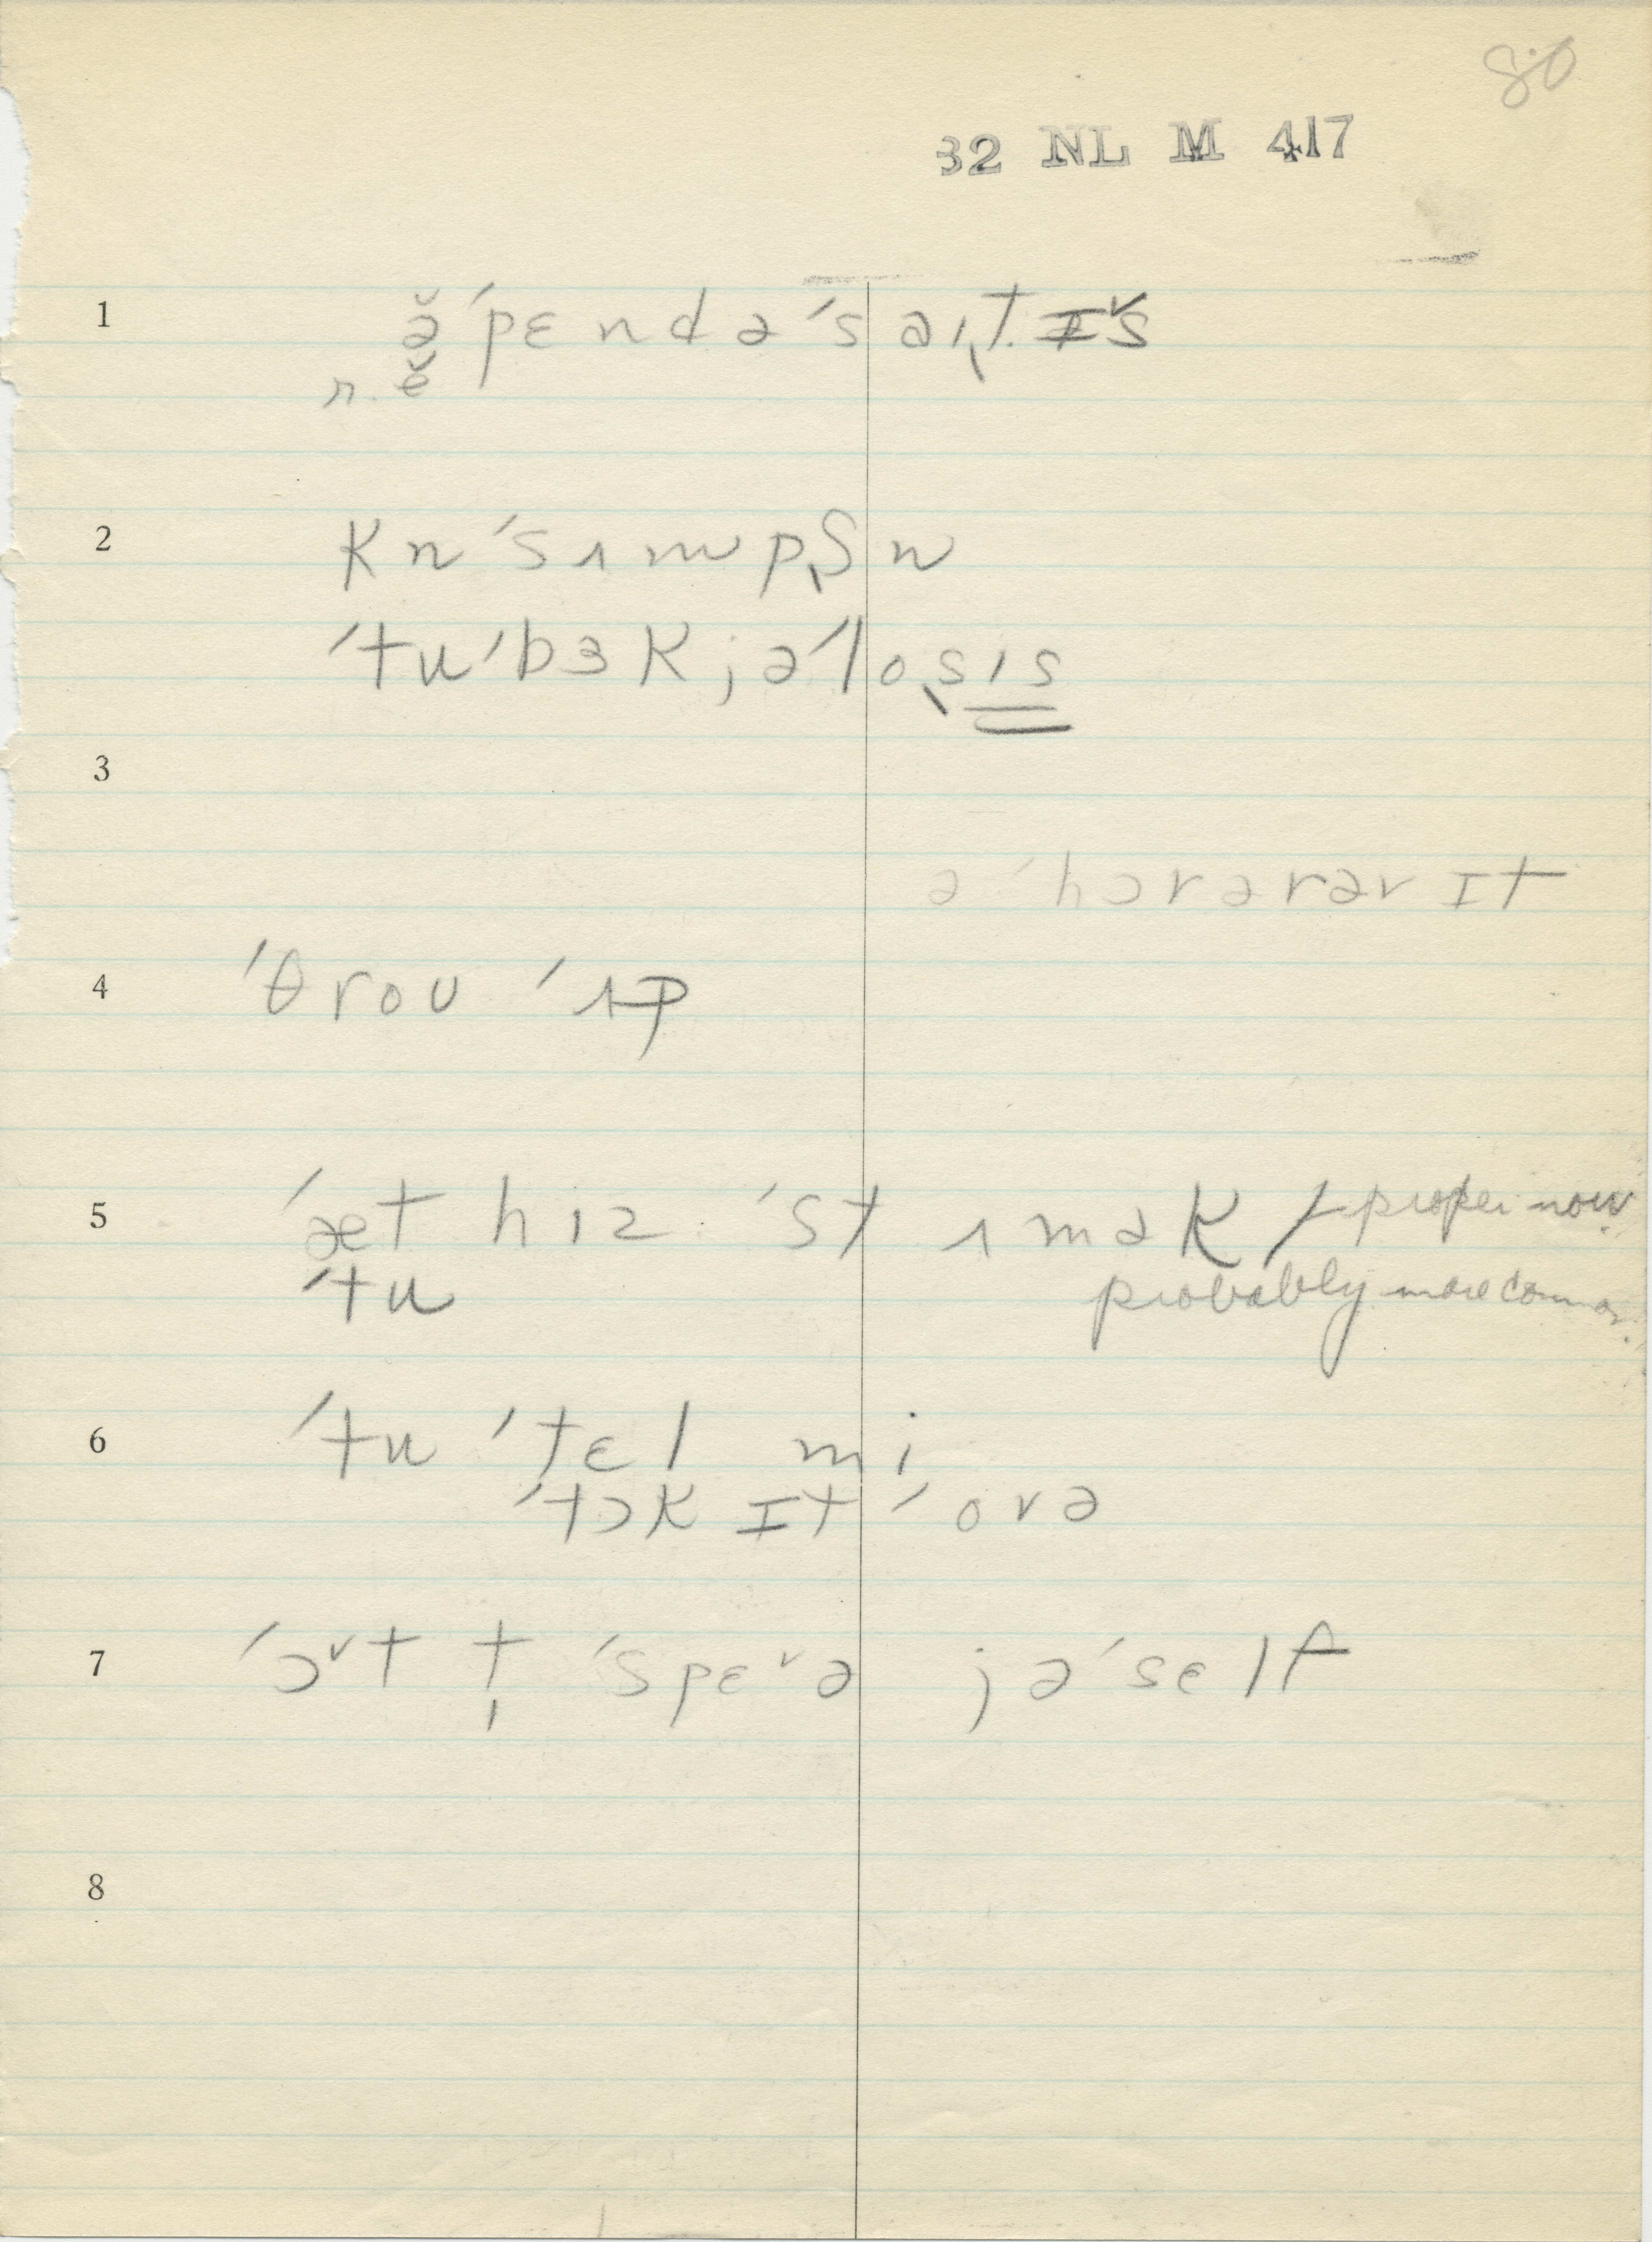 80
32 NL M 417
1 ə̆ ˈpɛndəˈsaɪt ɪˇs
r. ĕ
2 Kn ˈsʌmpʃn
ˈtuˈbɜKjəˈlosɪs
3
ə ˈhɔrərər ɪt
4 ˈθroʊ ˈʌp
5 ˈæt hiz ˈstʌmək / proper now
ˈtu probably more common.
6 ˈtu ˈtɛl mi
ˈtɔk ɪt ˈovə
7 ˈɔˇt t̩ ˈspɛˇə jəˈsɛlf
8